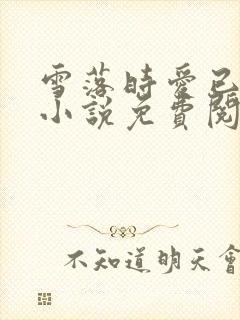 雪落時愛已
小說免費閱
不知道明天會